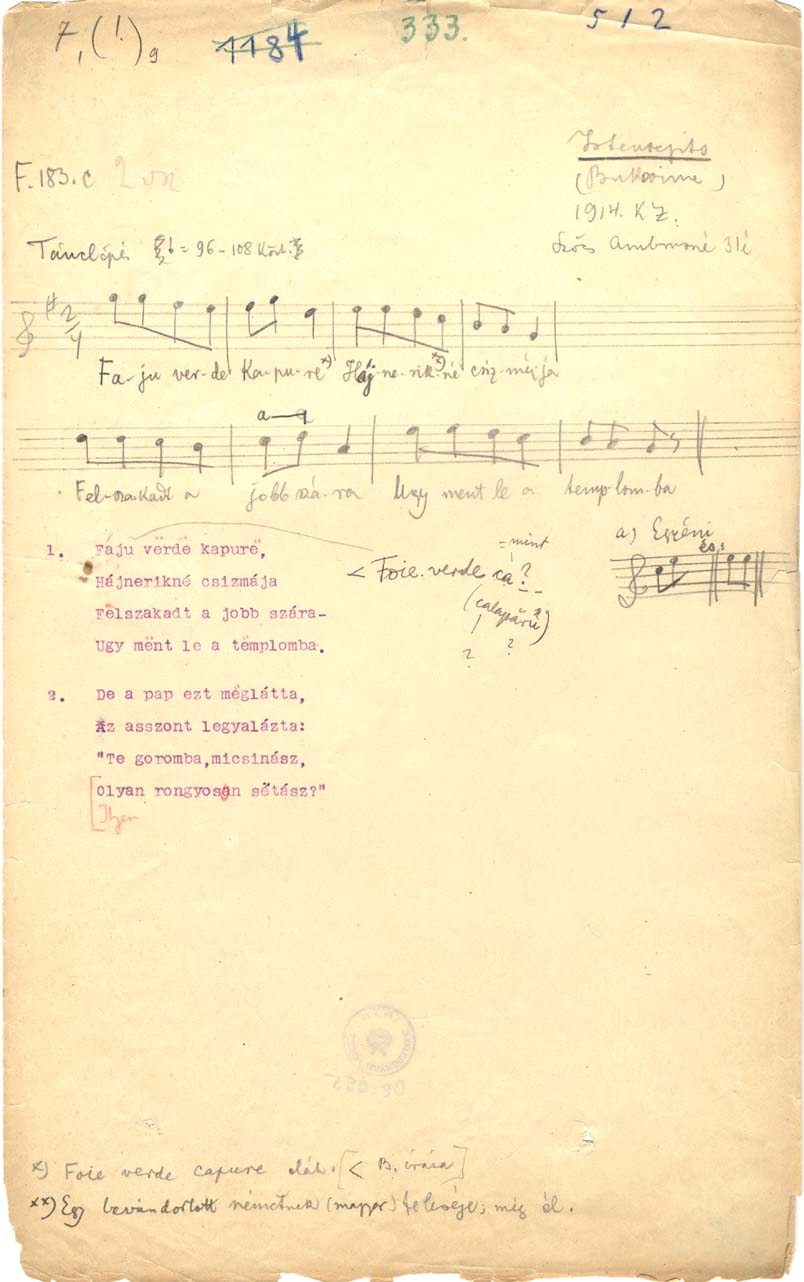 7,(!.)9 1184 333. 512
Istensegíts
F.183.c
(Bukovina)
1914. KZ.
Tánclépés = 96 - 108
Szőcs Ambrusné 31é
2/4
Fa-ju ver-de Ka-pu-re x) Háj-ne-rik-né xx) csiz-má-ja
a
Fel-sza-kadt a jobb szá-ra Ugy ment le a temp-lom-ba
1. Fáju vërdë kapurë,
Hájnerikné csizmája
Fëlszakadt a jobb szára-
Ugy mënt le a tëmplomba.
=mint
< Foie verde ca?
? ?
a) Egzéni
és:
2. De a pap ezt mëglátta,
Az asszont legyalázta:
"Te goromba,micsinász,
Olyan rongyosan sétász?"
Ilyen
x) Foie verde capure oláh. [< B. írása]
xx) Egy bevándorlott németnek (magyar) felesége; még él.